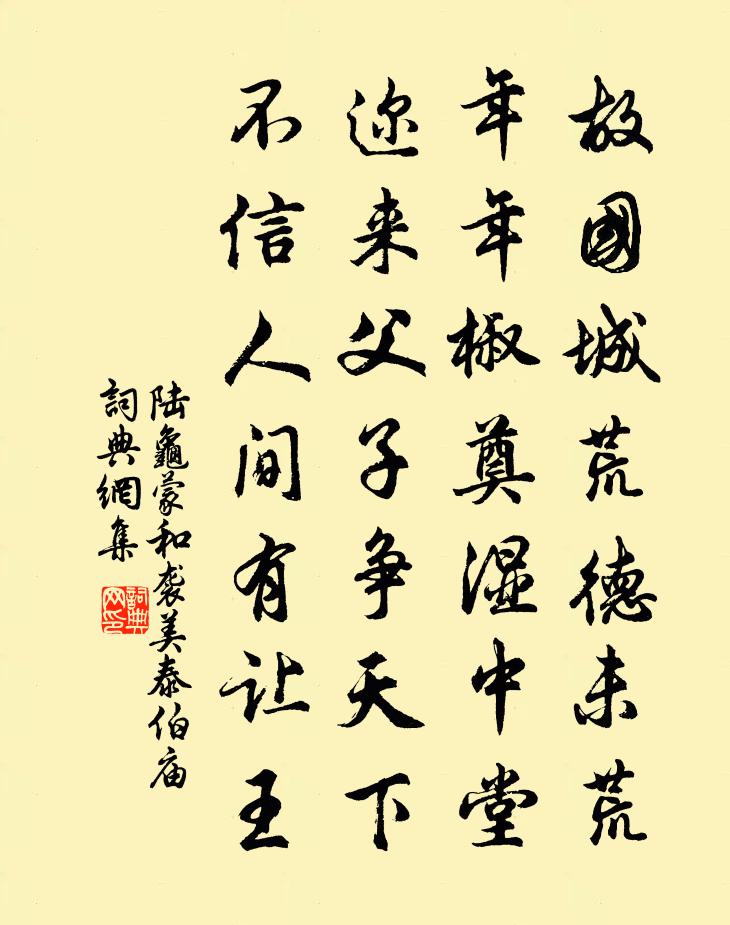 故國城荒德未荒
年年椒奠濕中堂
迩来父子争天下
不信人间有让王
陆龜蒙和袭美泰伯庙
詞典網集
詞典网印